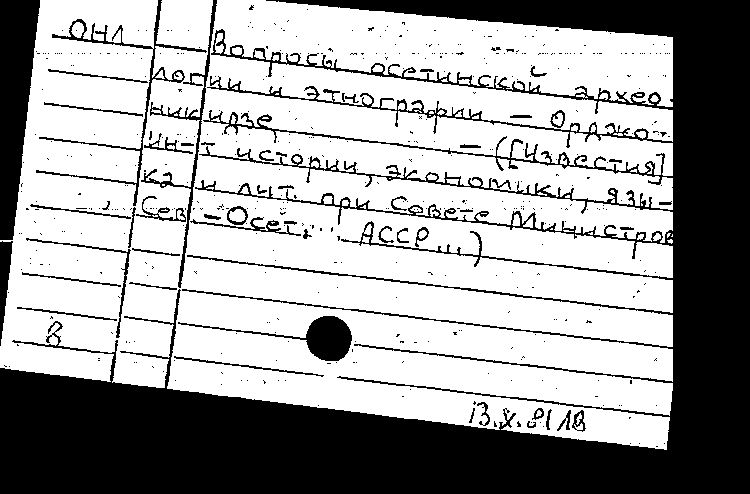 ОНЛ
Вопросы осетинской архео-
логии и этнографии. – Орджо-
никидзе, – ([Известия]
ин-т истории, экономики, язы-
ка и лит. при Совете Министров
Сев.-Осет. ... АССР...)
В
13.X.81